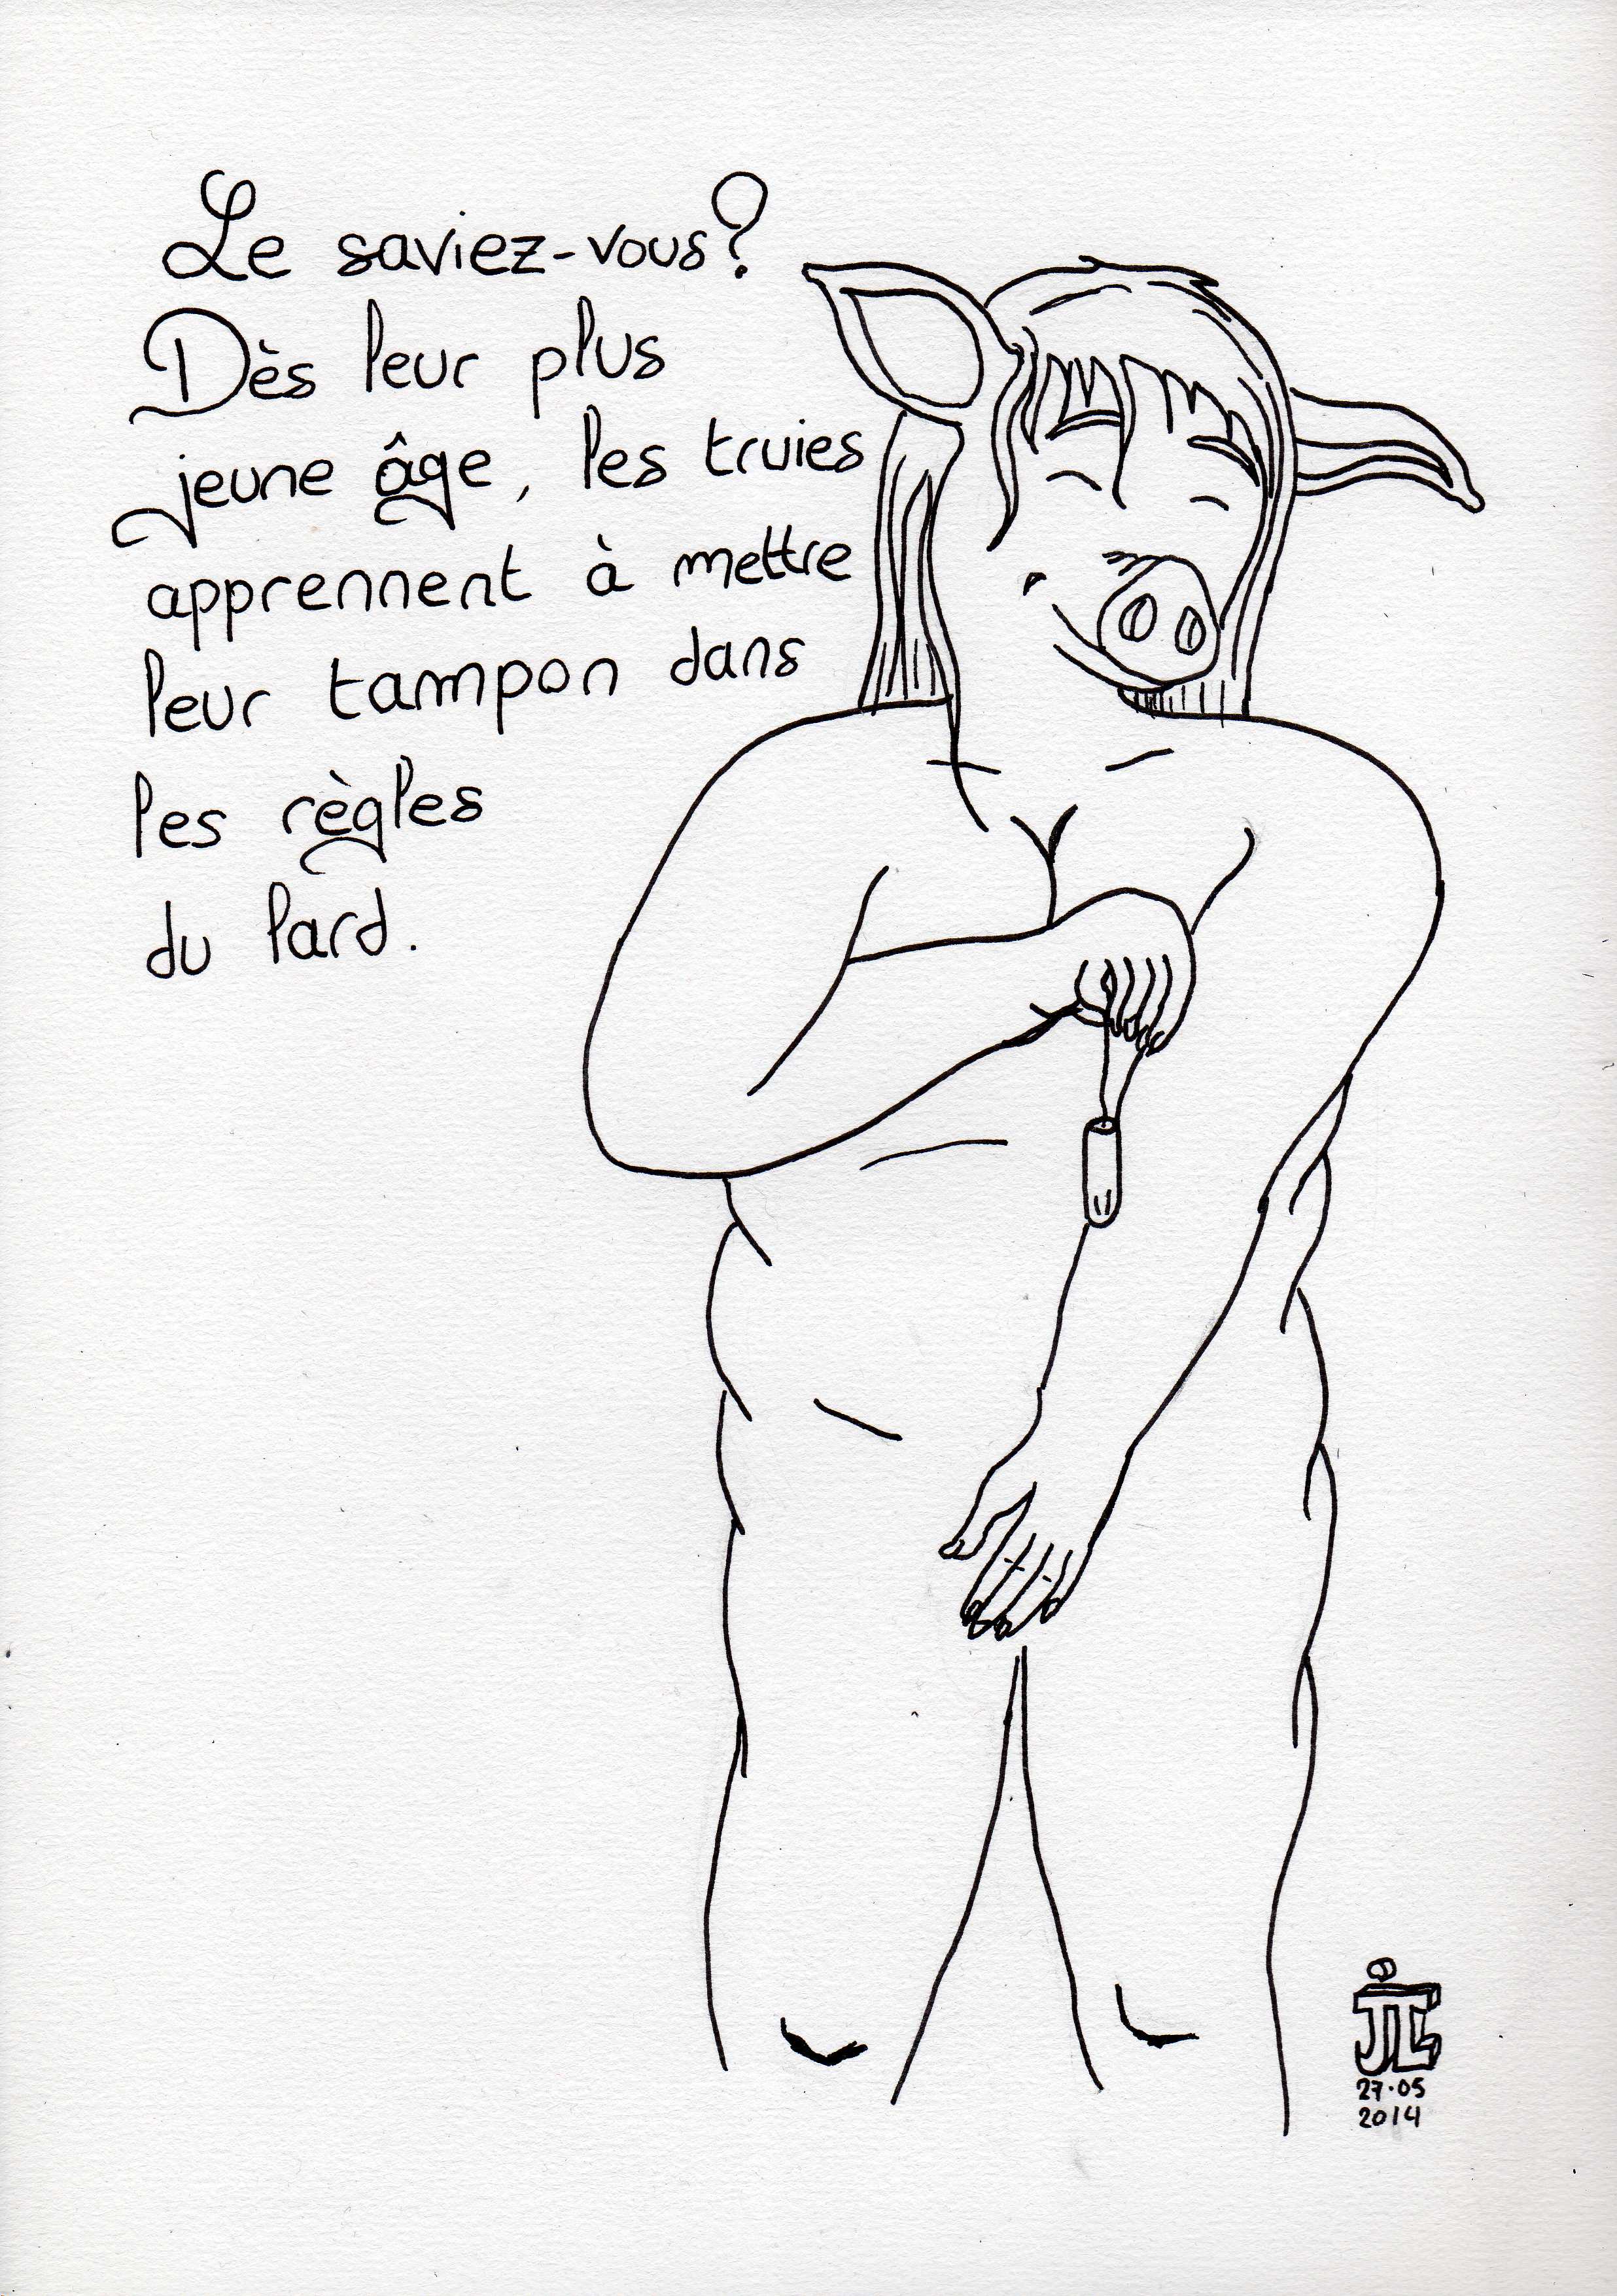 Le saviez-vous?
Dès leur plus
jeune âge, les truies
apprennent à mettre
leur tampon dans
les règles
du lard.
JL
27.05
2014